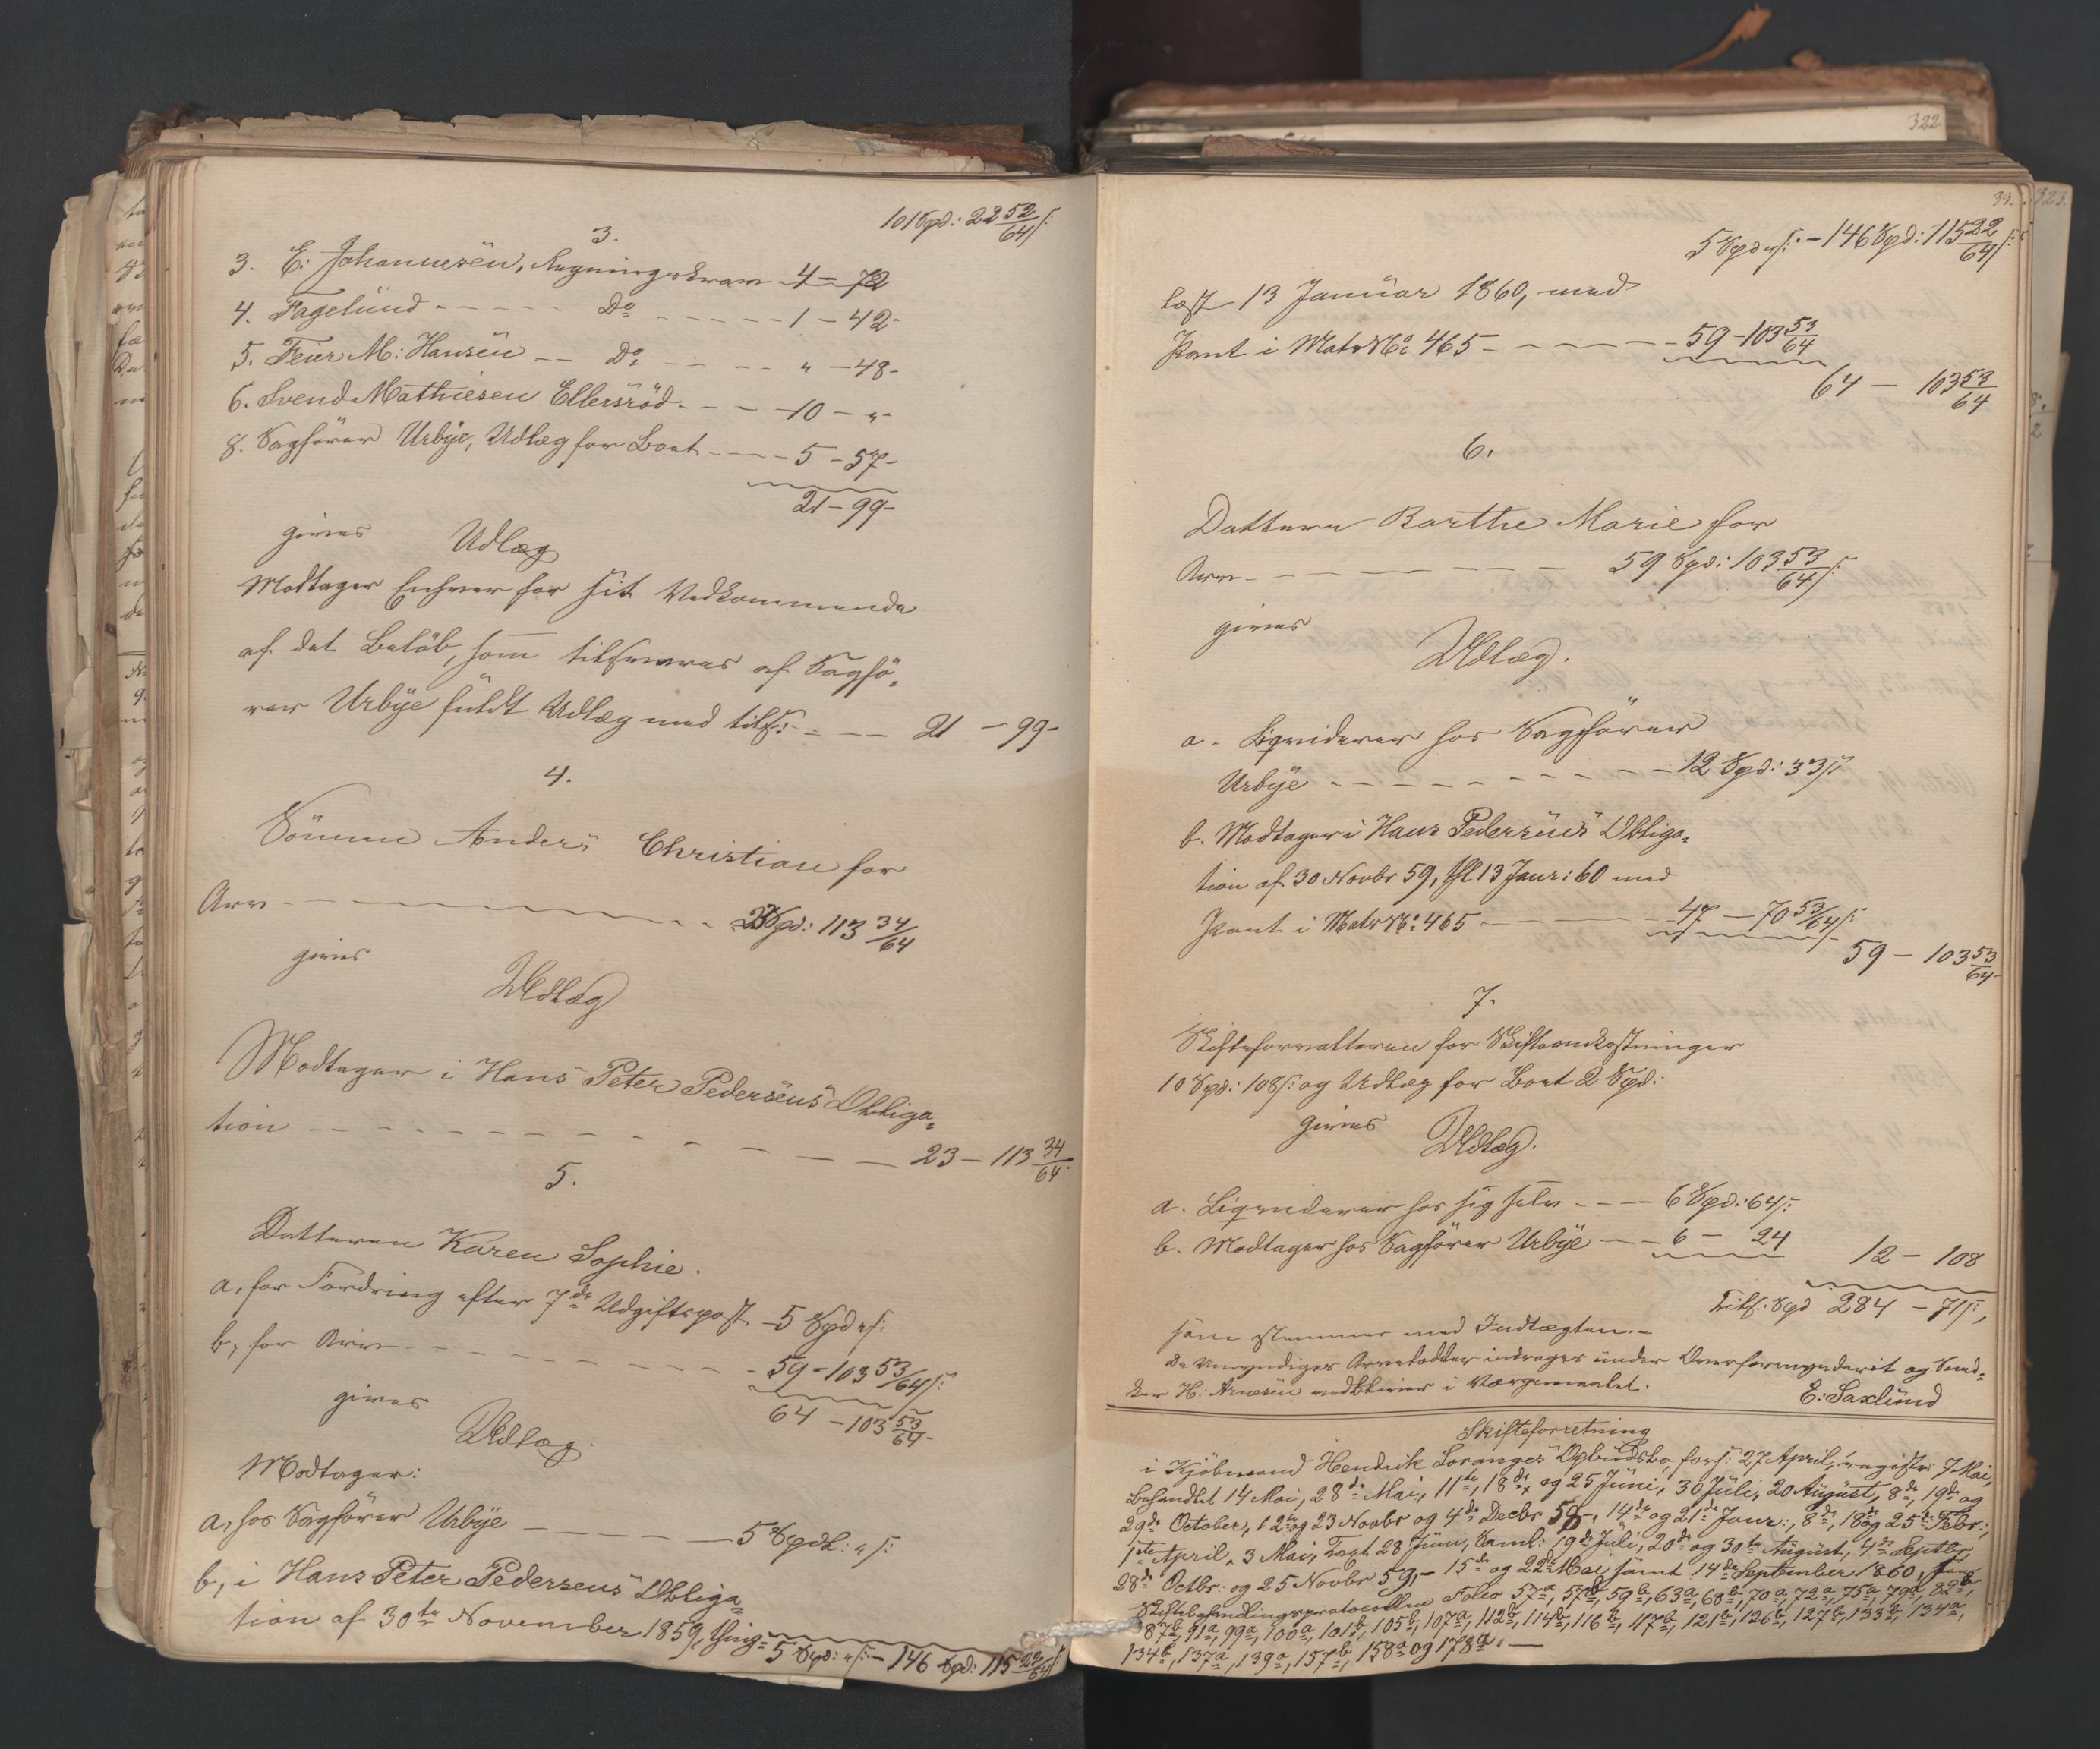 101 Spd: 22 52/64 ſ:
3.
3. E: Johannesen, Regningskrav 4 – 72
4. Fagelund - - - - - Do - - - - - 1 – 42 -
5. Feier M: Hansen - - Do - - - - " – 48 -
6. Svend Mathiesen Ellersröd. - - - 10 – "
8. Sagförer Urbye, Udlæg for Boet - - - - 5 – 57 -
21 – 99 -
gives Udlæg
Modtager Enhver for sit Vedkommende
af det Belöb, som tilsvares af Sagfö=
rer Urbye fuldt Udlæg med tils: - - - 21 – 99 -
4.
Sönnen Anders Christian for
Arv - - - - - 23 Spd: 113 34/64
gives
Udlæg
Modtager i Hans Peter Pedersens Obliga=
tion - - - - - 23 – 113 34/64
5.
Datteren Karen Sophie.
a, for Fordring efter 7de Udgiftspost - 5 Spd " ſ:
b, for Arv - - - - - 59 – 103 53/64 ſ:
64 – 103 53/64 -
gives
Udlæg.
Modtager:
a, hos Sagförer Urbye - - - - - 5 Spdl: " ſ:
b, i Hans Peter Pedersens Obliga=
tion af 30te November 1859, thing= 5 Spd: " ſ: – 146 Spd: 115 22/64 ſ:
322
39.
323.
5 Spd " ſ: – 146 Spd: 115 22/64 ſ:
læst 13 Januar 1860, med
Pant i Matr No 465 - - - - - 59 – 103 53/64
64 – 103 53/64
6.
Datteren Barthe Marie for
Arv - - - - - 59 Spd: 103 53/64 ſ:
gives
Udlæg.
a. Liqviderer hos Sagförer
Urbye - - - - - 12 Spd: 33 ſ:
b. Modtager i Hans Pedersens Obliga=
tion af 30 Novbr 59, thl 13 Janr: 60 med
Pant i Matr No: 465 - - - - - 47 – 70 53/64 ſ:
59 – 103 53/64 -
7.
Skifteforvalteren for Skifteomkostninger
10 Spd: 108 ſ: og Udlæg for Boet 2 Spd:
gives
Udlæg.
a. Liqviderer hos sig selv - - - - 6 Spd: 64 ſ:
b. Modtager hos Sagförer Urbye - - 6 – 24
12 – 108
Tils: Spd 284 – 71 ſ,
som stemmer med Indtægten. -
De Umyndiges Arvelodder inddrages under Overformynderiet og Sned=
ker H: Arnesen vedbliver i Værgemaalet.
E: Saxlund
Skifteforretning
i Kjöbmand Hendrik Opbudsbo, fors: 27 April, registr: 7 Mai,
behandlet 14 Mai, 28de Mai, 11te, 18de og 25 Juni, 30 Juli, 20 August, 8de, 19de og
29de October, 12te og 23 Novbr og 4de Decbr 58, 14de og 21de Janr:, 8de, 18de og 25de Febr:,
1ste April, 3 Mai, 28 Juni, Saml: 19de Juli, 20de og 30te August, 4de Septbr,
28de Octbr: og 25 Novbr 59, – 15de og 22de Mai samt 14de September 1860,
Skiftebehandlingsprotocollen Folio 57a, 57b, 59b, 63a, 68b, 70a, 72a, 75a, 79a, 82b,
87b, 91a, 99a, 100a, 101b, 105b, 107a, 112b, 114b, 116b, 117b, 121b, 126b, 127b, 133b, 134a,
134b, 137a, 139a, 157b, 158a og 178a. —